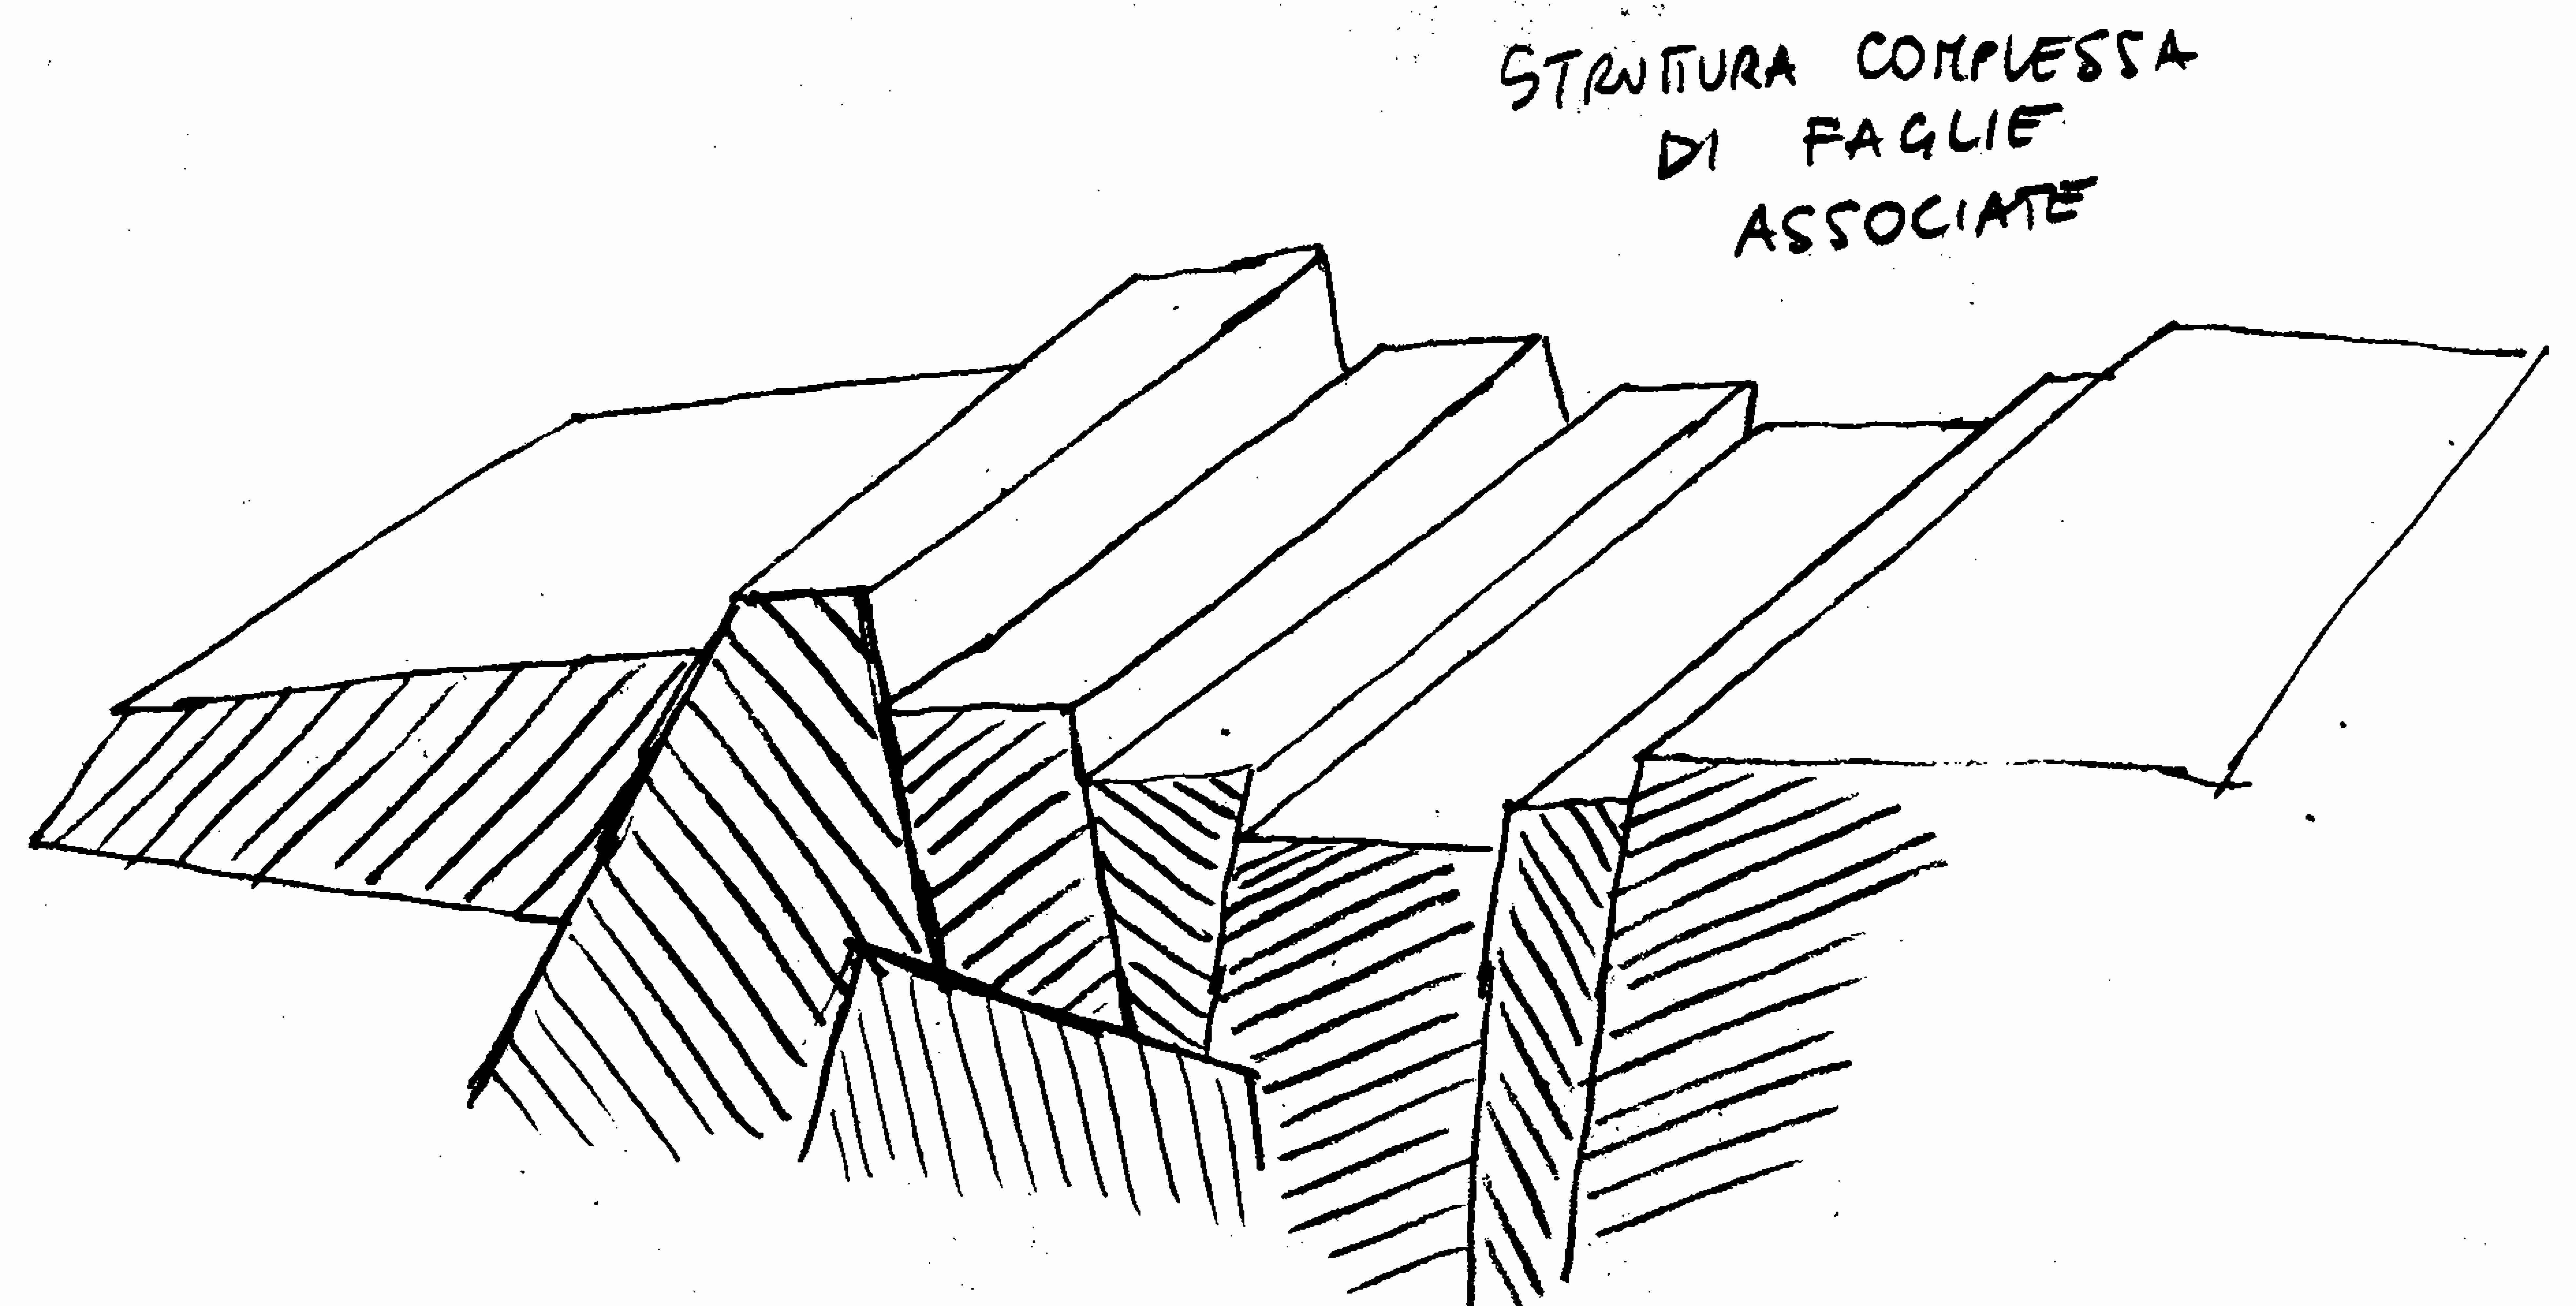 STRUTTURA COMPLESSA
DI FAGLIE
ASSOCIATE